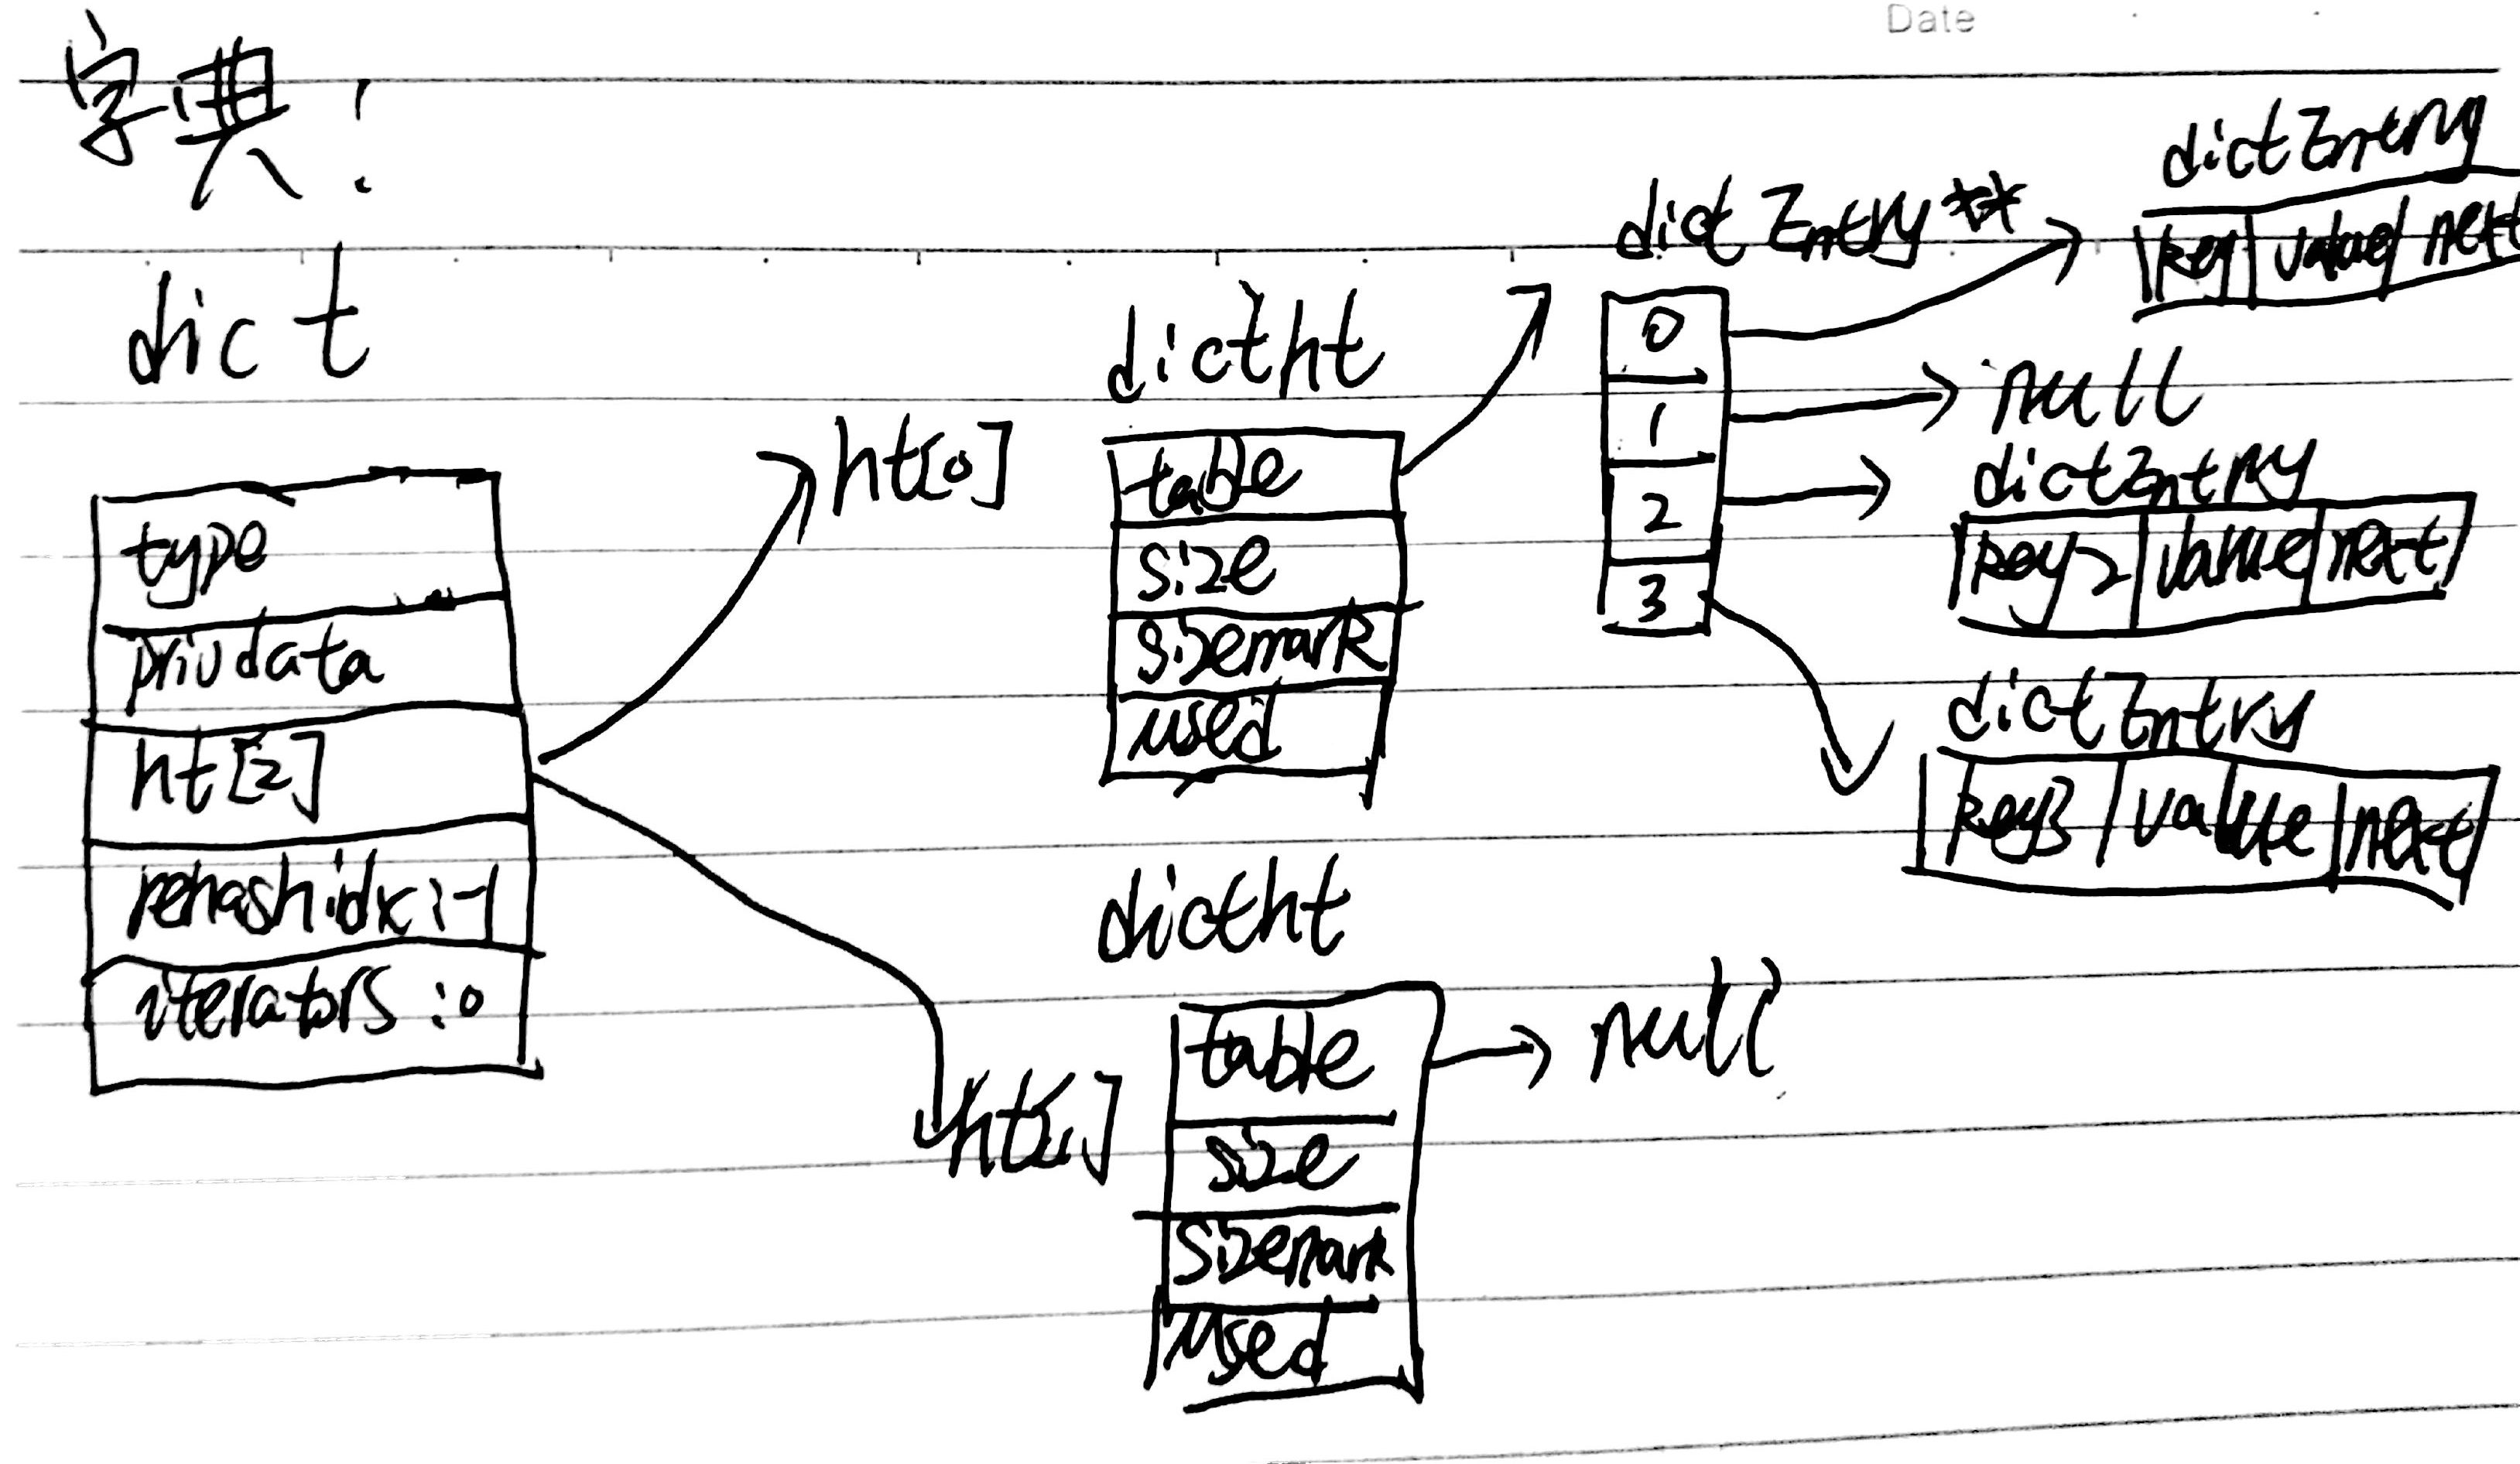 Date
字典:
dict
type
privdata
ht[2]
rehashidx:-1
iterators:0
ht[0]
dictht
table
size
sizemark
used
dictEntry**
0
1
2
3
dictEntry
key value next
null
dictEntry
key2 value next
dictEntry
key3 value next
dictht
ht[1]
table
size
sizemark
used
null